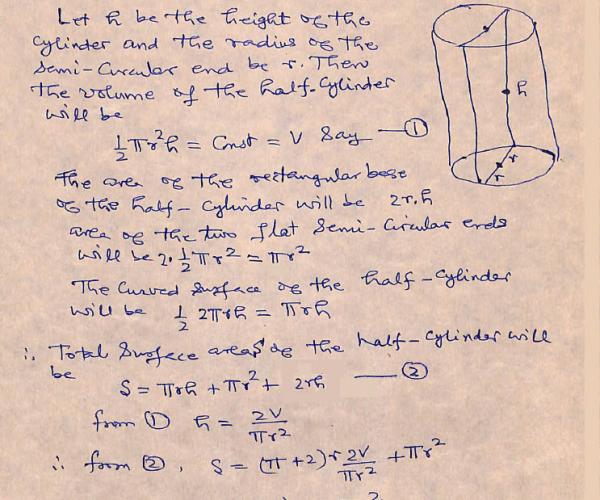 Let h be the height of the
cylinder and the radius of the
semi-circular end be r. Then
the volume of the half-cylinder
will be
½πr²h = Const = V Say — ①
The area of the rectangular base
of the half-cylinder will be 2r.h
area of the two flat semi-circular ends
will be 2.½πr² = πr²
The curved surface of the half-cylinder
will be ½ 2πrh = πrh
∴ Total Surface areas of the half-cylinder will
be
S = πrh + πr² + 2rh — ②
from ① h = 2V/πr²
∴ from ②, S = (π+2)r 2V/πr² + πr²
h
r
r